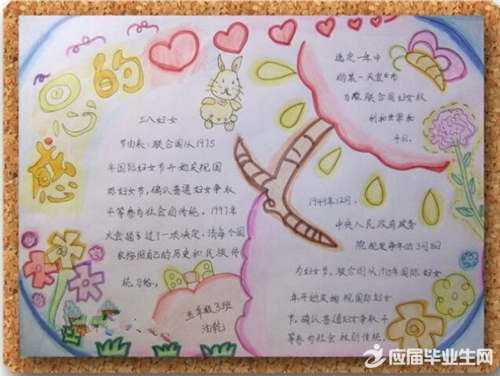 感恩的
三八妇女
节由来：联合国从1975
年国际妇女节开始庆祝国
际妇女节，确认普通妇女争取
平等参与社会的传统。1997年
大会通过了一项决定，请每个国
家按照自己的历史和民族传
统习俗，
五年级3班
选定一年中
的某一天宣布
为联合国妇女权
利和世界和
平日。
1949年12月，
中央人民政府政务
院规定每年的3月8日
为妇女节。联合国从1975年国际妇女
年开始庆祝国际妇女
节，确认普通妇女争取平
等参与社会的传统。
应届毕业生网